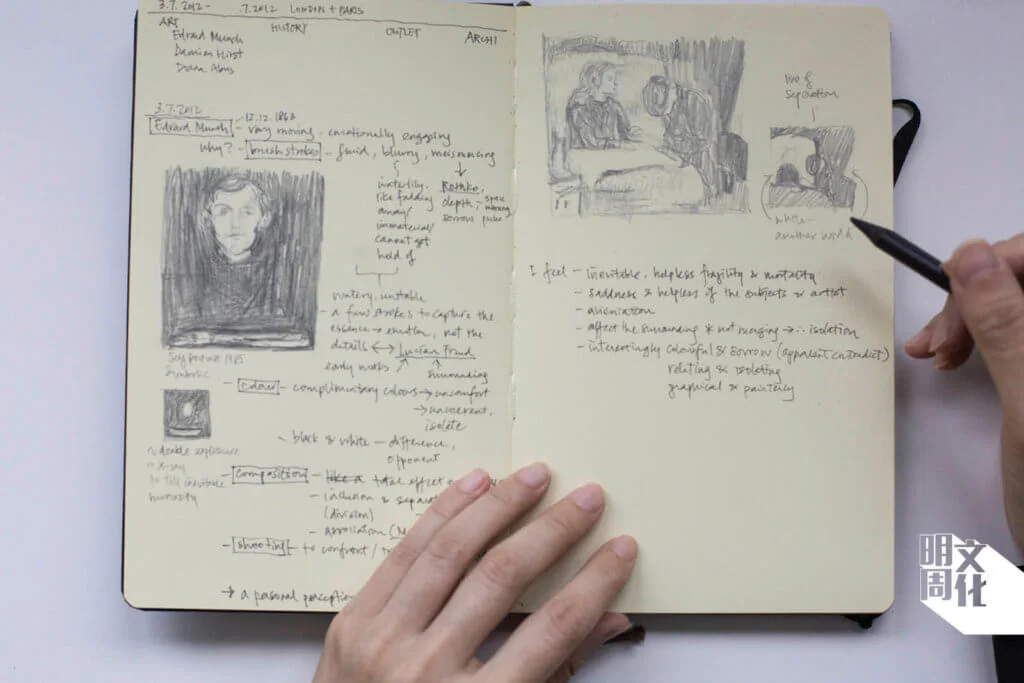 3.7.2012 - .7.2012 LONDON + PARIS
ART HISTORY OUTLET ARCHI
Edvard Munch
Damien Hirst
3.7.2012
Edvard Munch - 12.12.1863
- very moving - emotionally engaging
why? - brush strokes - fluid, blurry,
waterlily.
like fadding
away/
immaterial/
cannot get
hold of
Rothko,
depth, - space
sorrow
watery, unstable
- a few strokes to capture the
essence → emotion, not the
details ↔ Lucian Frud
early works
surrounding
Self portrait
Symbolic
- colour - complimentary colours → uncomfort
isolate
- black & white - difference,
opponent
~ double exposure
~ x-ray
to tell inevitable
humanity
- composition - like a effect
- inclusion &
(division)
- association
- shooting - to confront /
→ a personal perception
line of
separation
white -
another world
I feel - inevitable, helpless fragility & mortality
- saddness & helpless of the subjects & artist
- alienation
- affect the surrounding & not merging → ∴ isolation
- interestingly colourful & sorrow (apparent contradict.)
relating & isolating
graphical & painterly
明文
周化